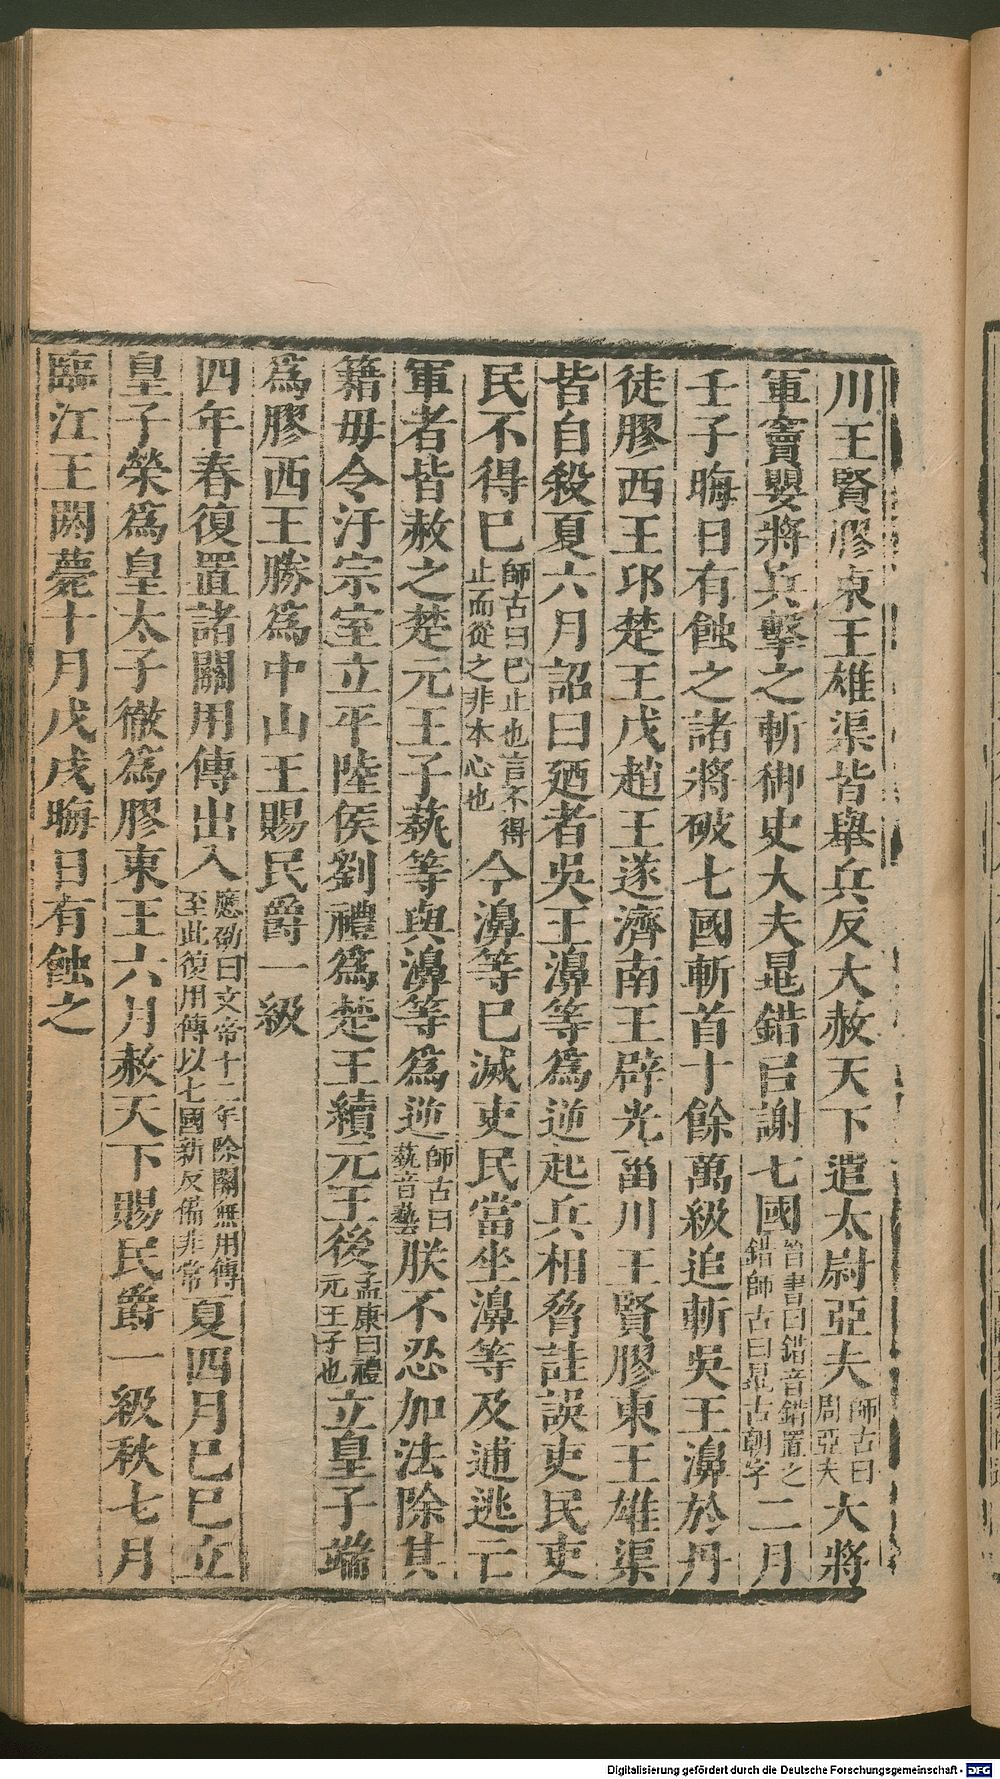 川王賢膠東王雄渠皆舉兵反大赦天下遣太尉亞夫師古曰周亞夫大將
軍竇嬰將兵擊之斬御史大夫晁錯㠯謝七國晉書曰錯音錯置之錯師古曰晁古朝字二月
壬子晦日有蝕之諸將破七國斬首十餘萬級追斬吳王濞於丹
徒膠西王卭楚王戊趙王遂濟南王辟光菑川王賢膠東王雄渠
皆自殺夏六月詔曰廼者吳王濞等爲逆起兵相脅詿誤吏民吏
民不得已師古曰已止也言不得止而從之非本心也今濞等已滅吏民當坐濞等及逋逃亡
軍者皆赦之楚元王子蓺等與濞等爲逆師古曰蓺音藝朕不忍加法除其
籍毋令汙宗室立平陸侯劉禮爲楚王續元王後孟康曰禮元王子也立皇子端
爲膠西王勝爲中山王賜民爵一級
四年春復置諸關用傳出入應劭曰文帝十二年除關無用傳至此復用傳以七國新反備非常夏四月己巳立
皇子榮爲皇太子徹爲膠東王六月赦天下賜民爵一級秋七月
臨江王閼薨十月戊戌晦日有蝕之
Digitalisierung gefördert durch die Deutsche Forschungsgemeinschaft - DFG